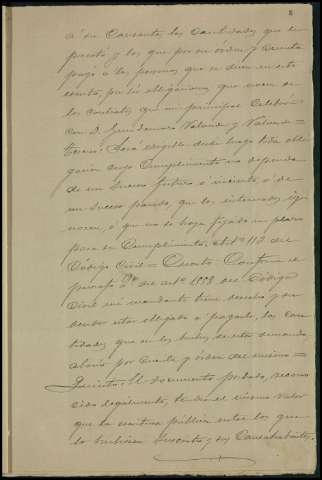 8
á su Causante, las cantidades que le
prestó y las que por su órden y cuenta
pagó á las personas que se dicen en este
escrito, por las obligaciones que nacen de
los contratos que mi principal celebró
con D. Guillermo Valande y Valver=
Tercero: Será exigible desde luego toda obli
gacion cuyo cumplimiento no dependa
de un suceso futuro ó incierto, ó de
un suceso pasado, que los interesados ig
noren, ó que no se haya fijado un plazo
para su cumplimiento, art.º 113 del
Código Civil = Cuarto: Conforme al
parrafo 2º del art.º 1158 del Código
Civil mi mandante tiene derecho y su
deudor está obligado á pagarle, las can
tidades que en los hechos de esta demanda
abonó por cuenta y órden del mismo =
Quinto: El documento privado, recono
cido legalmente, tendrá el mismo valor
que la escritura pública entre los que
lo hubieran suscrito y sus Causahabientes,